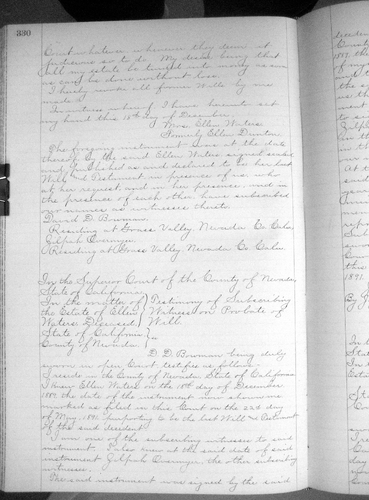 330
Court whatever whenever they deem it
judicious so to do. My desire being that
all my estate be turned into money as soon
as can be done without loss.
I hereby revoke all former Wills by me
made.
In witness whereof I have hereunto set
my hand this 18th day of December,
Mrs. Ellen Waters
Formerly Ellen Dunton.
The foregoing instrument was at the date
thereof by the said Ellen Waters signed sealed
and published as and declared to be her last
Will and Testament in presence of us, who
at her request, and in her presence, and in
the presence of each other have subscribed
our names as witnesses thereto.
David D. Bowman,
Residing at Grass Valley Nevada Co. Calif.
Residing at Grass Valley Nevada Co. Calif.
In the Superior Court of the County of Nevada
State of California.
In the matter of Testimony of Subscribing
the Estate of Ellen Witness on Probate of
Waters Deceased Will.
State of California
County of Nevada ss
D. D. Bowman being duly
sworn in open Court, testifies as follows:
I reside in the County of Nevada State of California
I knew Ellen Waters on the 18th day of December
the date of the instrument now shown me
marked as filed in this Court on the 23d day
of May, 1891 purporting to be the last Will and Testament
of the said decedent.
I am one of the subscribing witnesses to said
instrument. I also knew at the said date of said
instrument the other subscribing
witness.
The said instrument was signed by the said